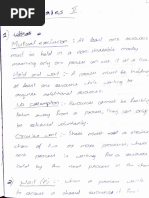 1) 
Mutual exclusion :- At least one resource
must be held in a non shareable mode,
meaning only one process can use it at a time
Hold and wait :- A process must be holding
at least one resource while waiting to
acquire additional resources.
No preemption :- Resources cannot be forcibly
taken away from a process, they can only
be released voluntarily.
Circular wait :- There must exist a circular
chain of two or more processes, where
each process is waiting for a resource
held by the next process in the
2) Wait (P) :- when a process
to access a shared resource, it